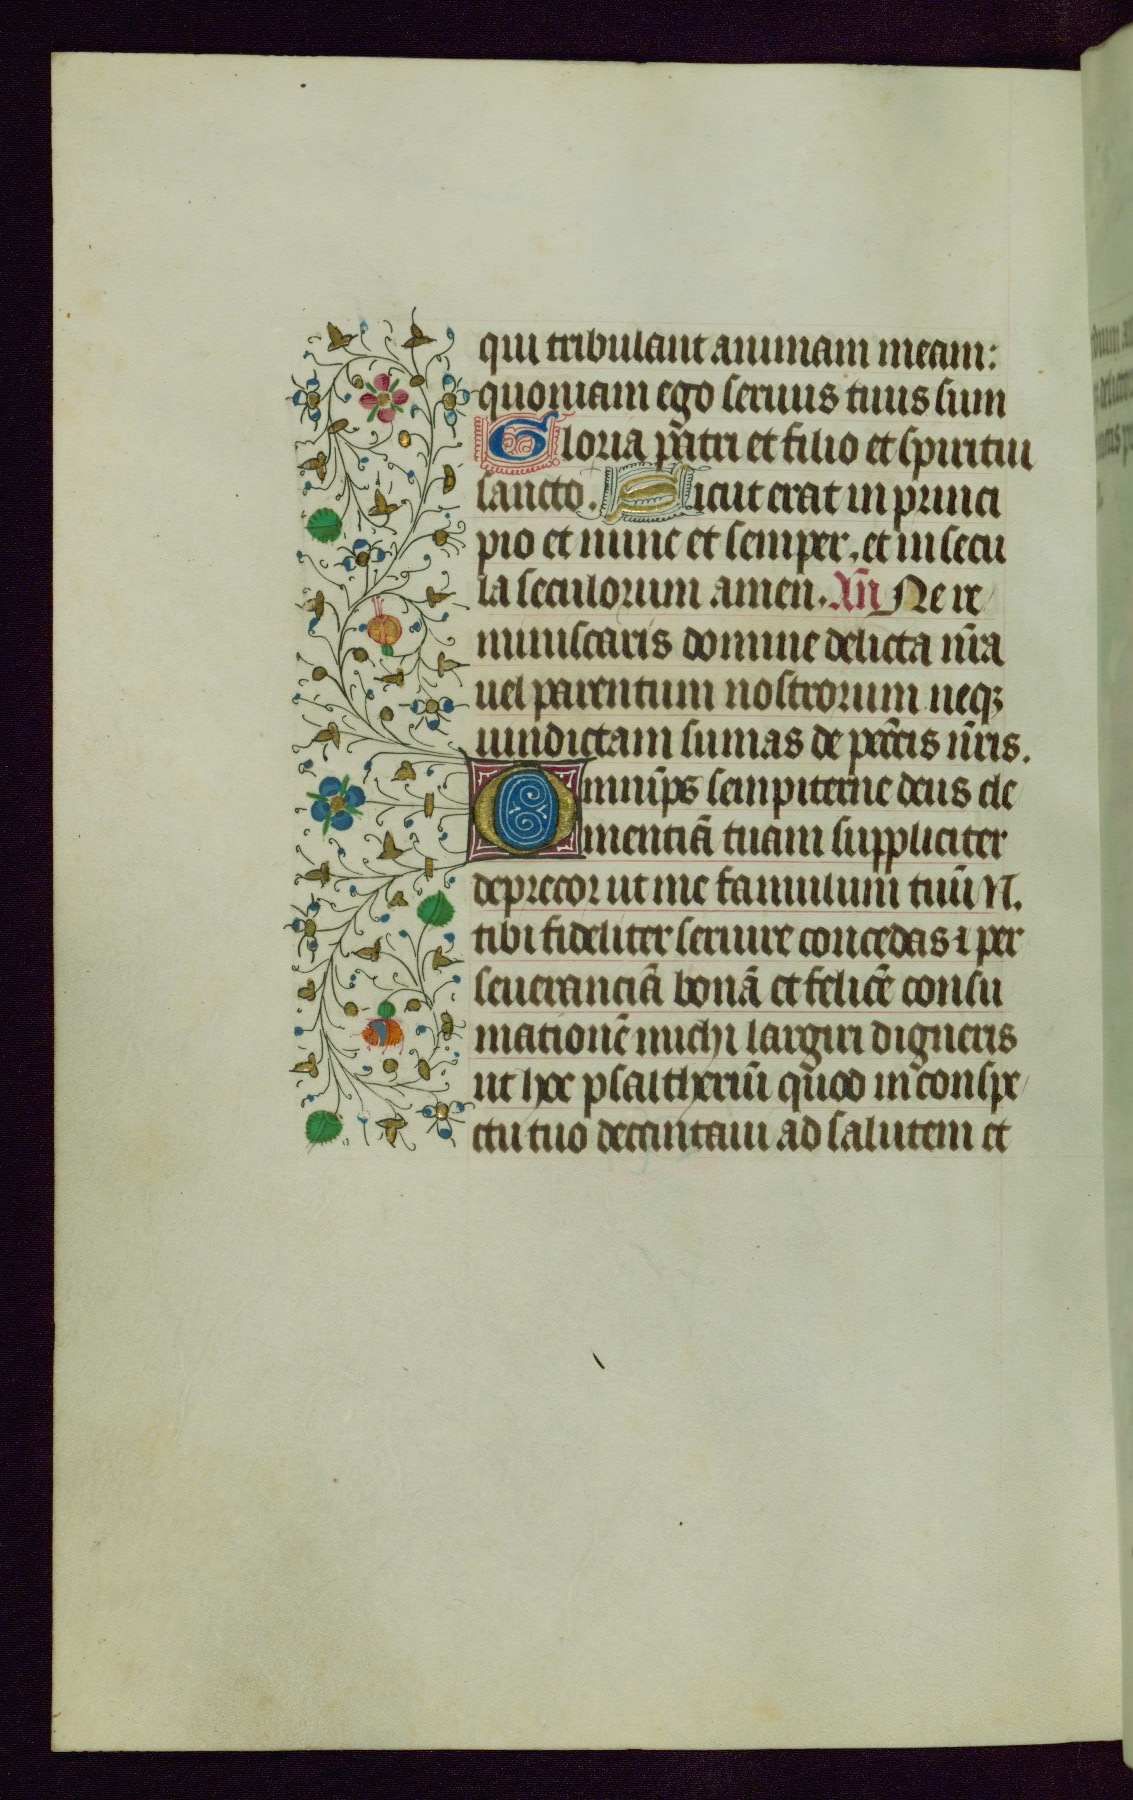 qui tribulant animam meam:
quoniam ego seruus tuus sum
Gloria pat̃ri et filio et spiritui
sancto. Sicut erat in princi
pio et nunc et semper, et in secu
la seculorum amen. An̄ Ne re
miniscaris domine delicta nr̃a
uel parentum nostrorum neqꝫ
uindictam sumas de pctĩs nr̃is.
Omnip̃s sempiterne deus cle
mentiã tuam suppliciter
deprecor ut me famulum tuũ N.
tibi fideliter seruire concedas ⁊ per
seueranciã bonã et felicẽ consu
mationẽ michi largiri digneris
ut hoc psaltheriũ quod in conspe
ctu tuo decantaui ad salutem et